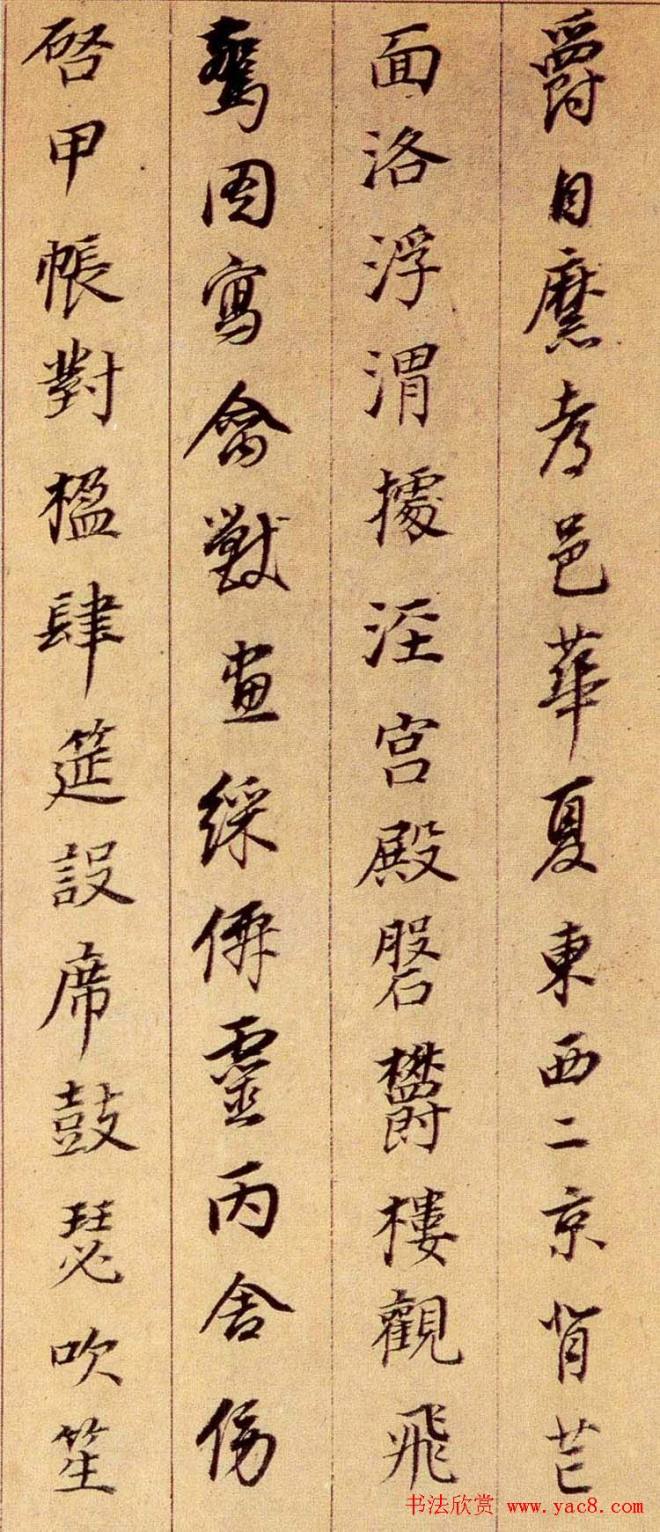 爵自縻都邑華夏東西二京背芒
面洛浮渭據涇宮殿磐欝樓觀飛
驚圖寫禽獸畫綵僊靈丙舍傍
啓甲帳對楹肆筵設席鼓瑟吹笙
书法欣赏 www.yac8.com